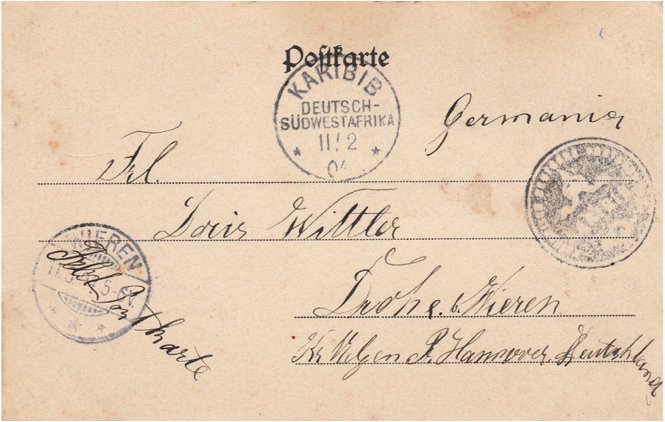 Postkarte
KARIBIB
DEUTSCH-
SÜDWESTAFRIKA
11/2
04
Germania
Frl.
Doris Wittler
WIEREN
11.3. 5-6
Feldpostkarte
Drohe b. Wieren
Kr. Uelzen P. Hannover. Deutschland